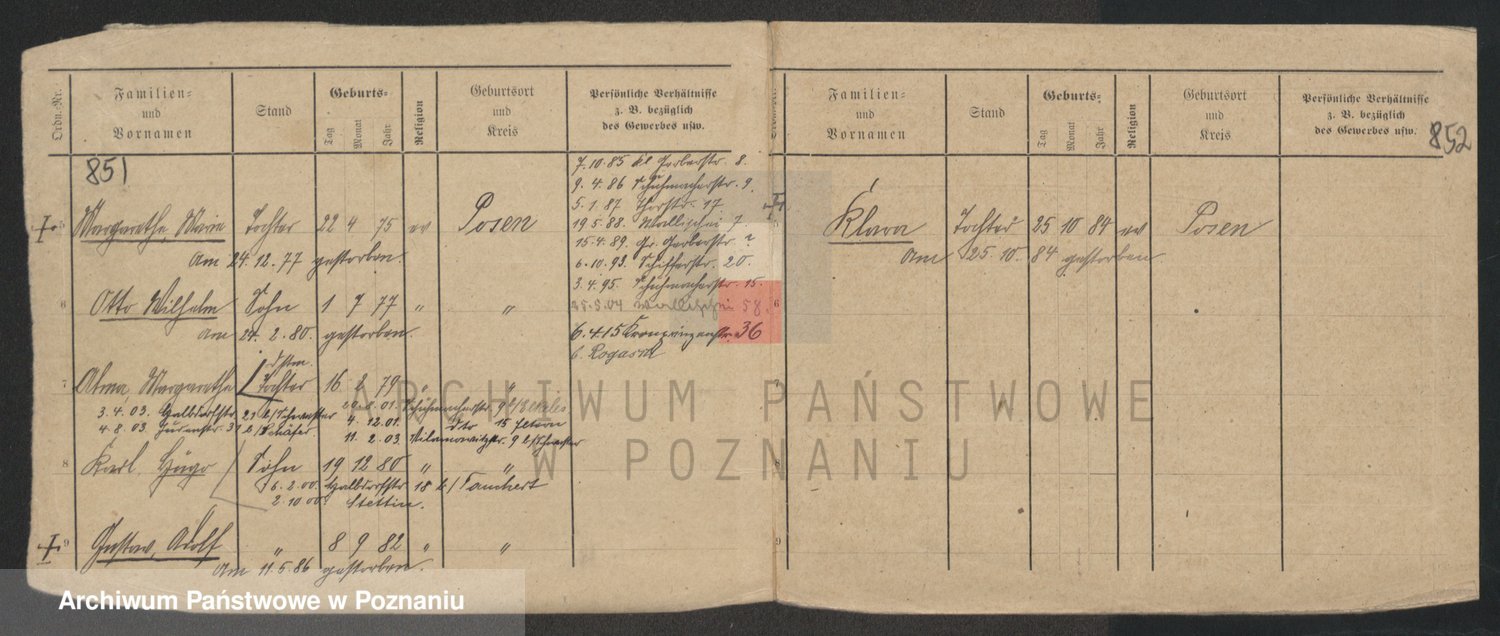 Ordn.-Nr.
Familien-
und
Vornamen
Stand
Geburts-
Tag
Monat
Jahr
Religion
Geburtsort
und
Kreis
Persönliche Verhältnisse
z. B. bezüglich
des Gewerbes usw.
851
7.10.85 kl Gerberstr. 8.
9.4.86 Schuhmacherstr. 9.
5.1.87 Thorstr. 17
19.5.88. Wallischei 7.
15.4.89. Gr. Gerberstr. ?
6.10.93. Schifferstr. 20.
3.4.95. Schuhmacherstr. 15.
25.3.04 Wallischei 58.
6.4.15 Kronprinzenstr. 36
Rogasen
5 Margarethe, Maria Tochter 22 4 75 ev Posen
Am 24.12.77 gestorben.
6 Otto Wilhelm Sohn 1 7 77 " "
Am 24.2.80. gestorben.
7 Alma, Margarethe Tochter 16 2 79 " "
3.4.03. Halbdorfstr. 23 b/Schwester
01. Schuhmacherstr. 9 b/
4.8.03. Judenstr. b/Schäfer
4.12.01. dto 15
11.2.03. Wilamowitzstr. 9 b/Schwester
8 Karl Hugo Sohn 19 12 80 " "
6.2.00. Halbdorfstr 18 b/ Tauchert
2.10.00. Stettin.
9 Gustav, Adolf " 8 9 82 " "
Am 11.5.86 gestorben.
Familien-
und
Vornamen
Stand
Geburts-
Tag
Monat
Jahr
Religion
Geburtsort
und
Kreis
Persönliche Verhältnisse
z. B. bezüglich
des Gewerbes usw.
852
5 Klara Tochter 25 10 84 ev Posen
Am 25.10.84 gestorben.
6
7
8
9
ARCHIWUM PAŃSTWOWE
W POZNANIU
Archiwum Państwowe w Poznaniu